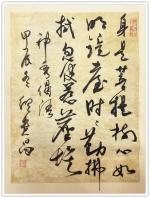 身是菩提樹心如
明鏡臺時時勤拂
拭使惹塵埃
神秀偈語
甲辰冬